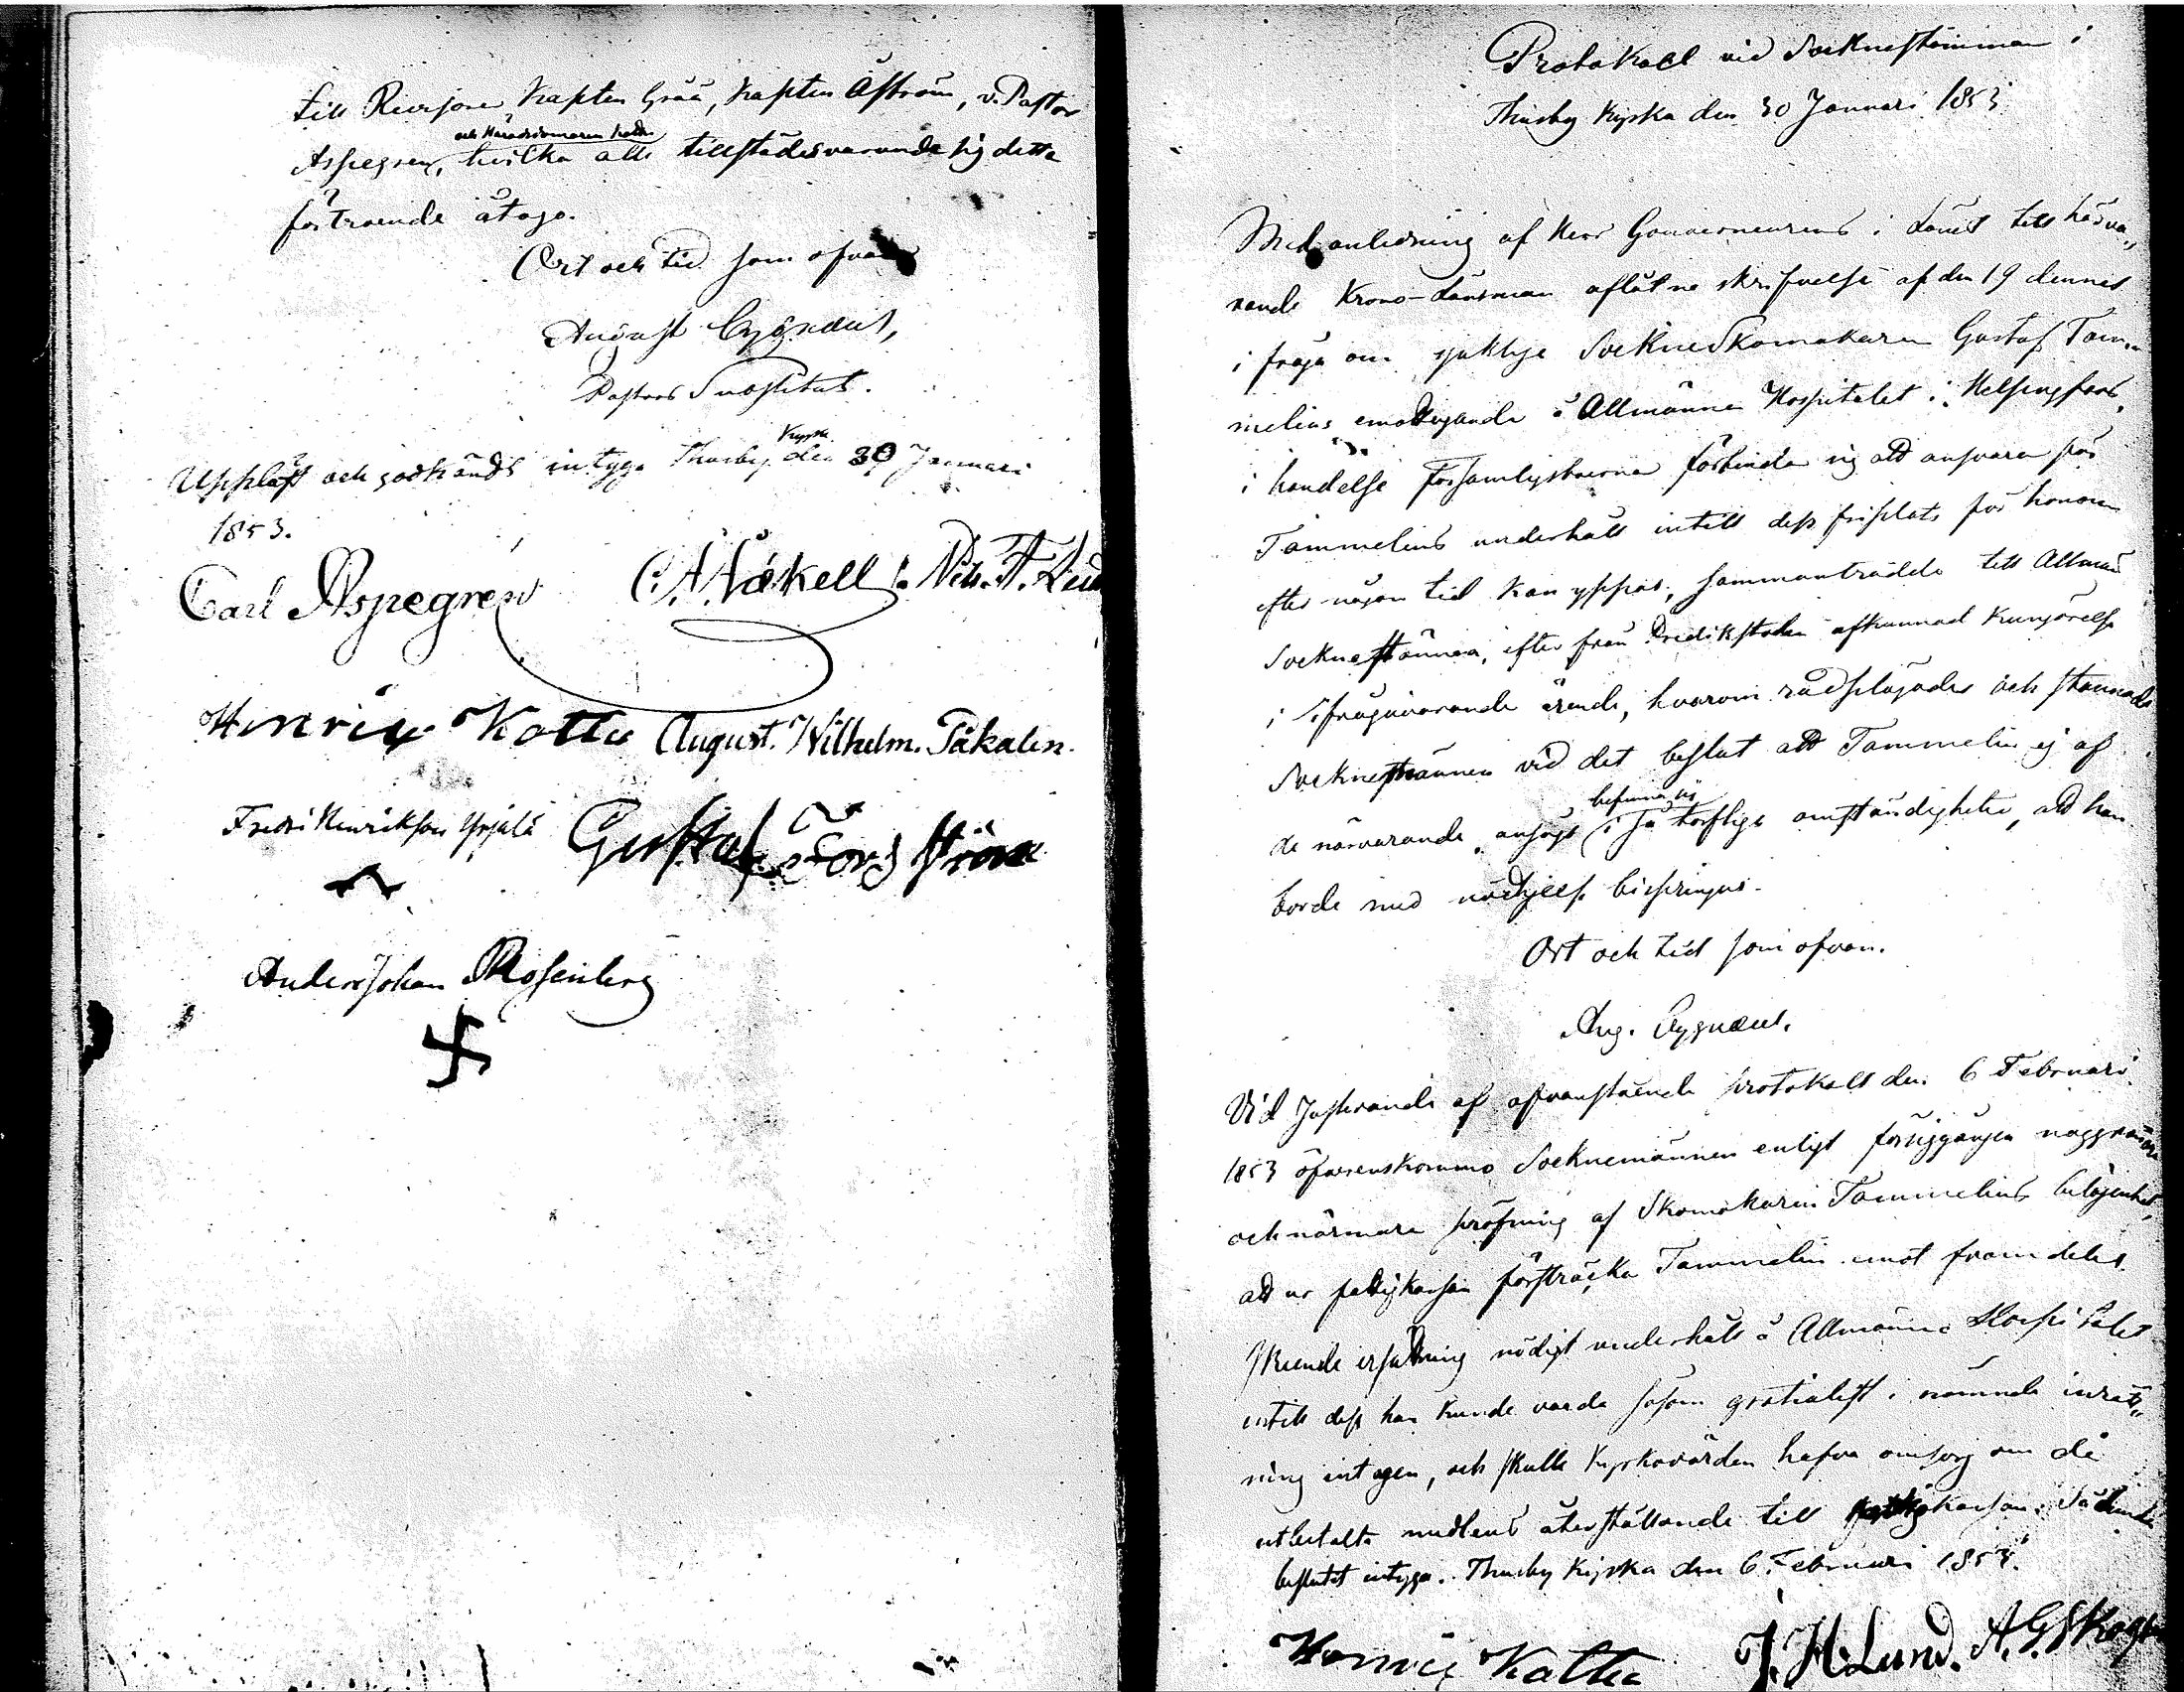 till Revisorer Kapten Gråå, Kapten Åström, v. Pastor
och Häradsdomaren Kottu
Aspegren, hvilka alle tillstädesvarande sig detta
förtroende åtogo.
Ort och tid som ofvan
August Cygnæus,
Pastors Substitut.
Uppläst och godkändt intyga Thusby Kyrka den 30 Januari
1853.
Carl Aspegren C. A. Nækell
Henric Kottu August. Wilhelm. Påkalen.
Fredr: Henriksson Yrjälä Gustaf Forsström
Anders Johan Rosenberg
Protokoll vid Socknestämman i
Thusby Kyrka den 30 Januari 1853
Med anledning af Herr Gouverneurens i Länet till härva„
rande Krono-Länsman aflåtne skrifvelse af den 19 dennes
i fråga om sjuklige Sockneskomakaren Gustaf Tam„
melins emottagande å Allmänna Hospitalet i Helsingfors,
i händelse Församlingsboerne förbinda sig att ansvara för
Tammelins underhåll intill dess friplats för honom
efter någon tid kan yppas, sammanträdde till Allmän
Socknestämma, efter från Predikstolen afkunnad kungörelse
i ifrågavarande ärende, hvarom rådplägades och stannade
Socknemännen vid det beslut att Tammelin ej af
de närvarande ansågs befinna sig i så torftige omständigheter, att han
borde med nödhjelp bispringas.
Ort och tid som ofvan.
Aug. Cygnæus.
Vid Justerande af ofvanstående protokoll den 6 Februari
1853 öfverenskommo Socknemännen enligt föregången noggrannare
och närmare pröfning af Skomakaren Tammelins belägenhet,
att ur fattigkassan försträcka Tammelin emot framdeles
skeende ersättning nödigt underhåll å Allmänna Hospitalet
intill dess han kunde varda såsom gratialist i nämnde inrätt„
ning intagen, och skulle Kyrkovärden hafva omsorg om de
utbetalta medlens återställande till fattigkassan. Sådant
beslutet intyga. Thusby Kyrka den 6 Februari 1853.
Henric Kottu J. H. Lund. A. G. Skog